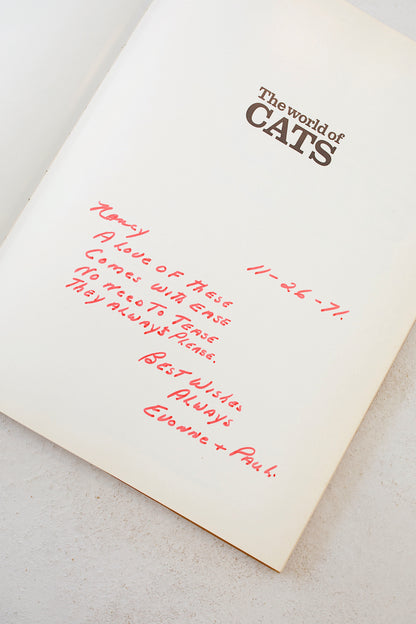 The world of
CATS
Nancy
11-26-71.
A Love OF THese
Comes WITH EASE
NO Need To TEASE
THey ALWAYS PLEASE.
BEST WISHes
ALWAYS
EVONNE + PAUL.